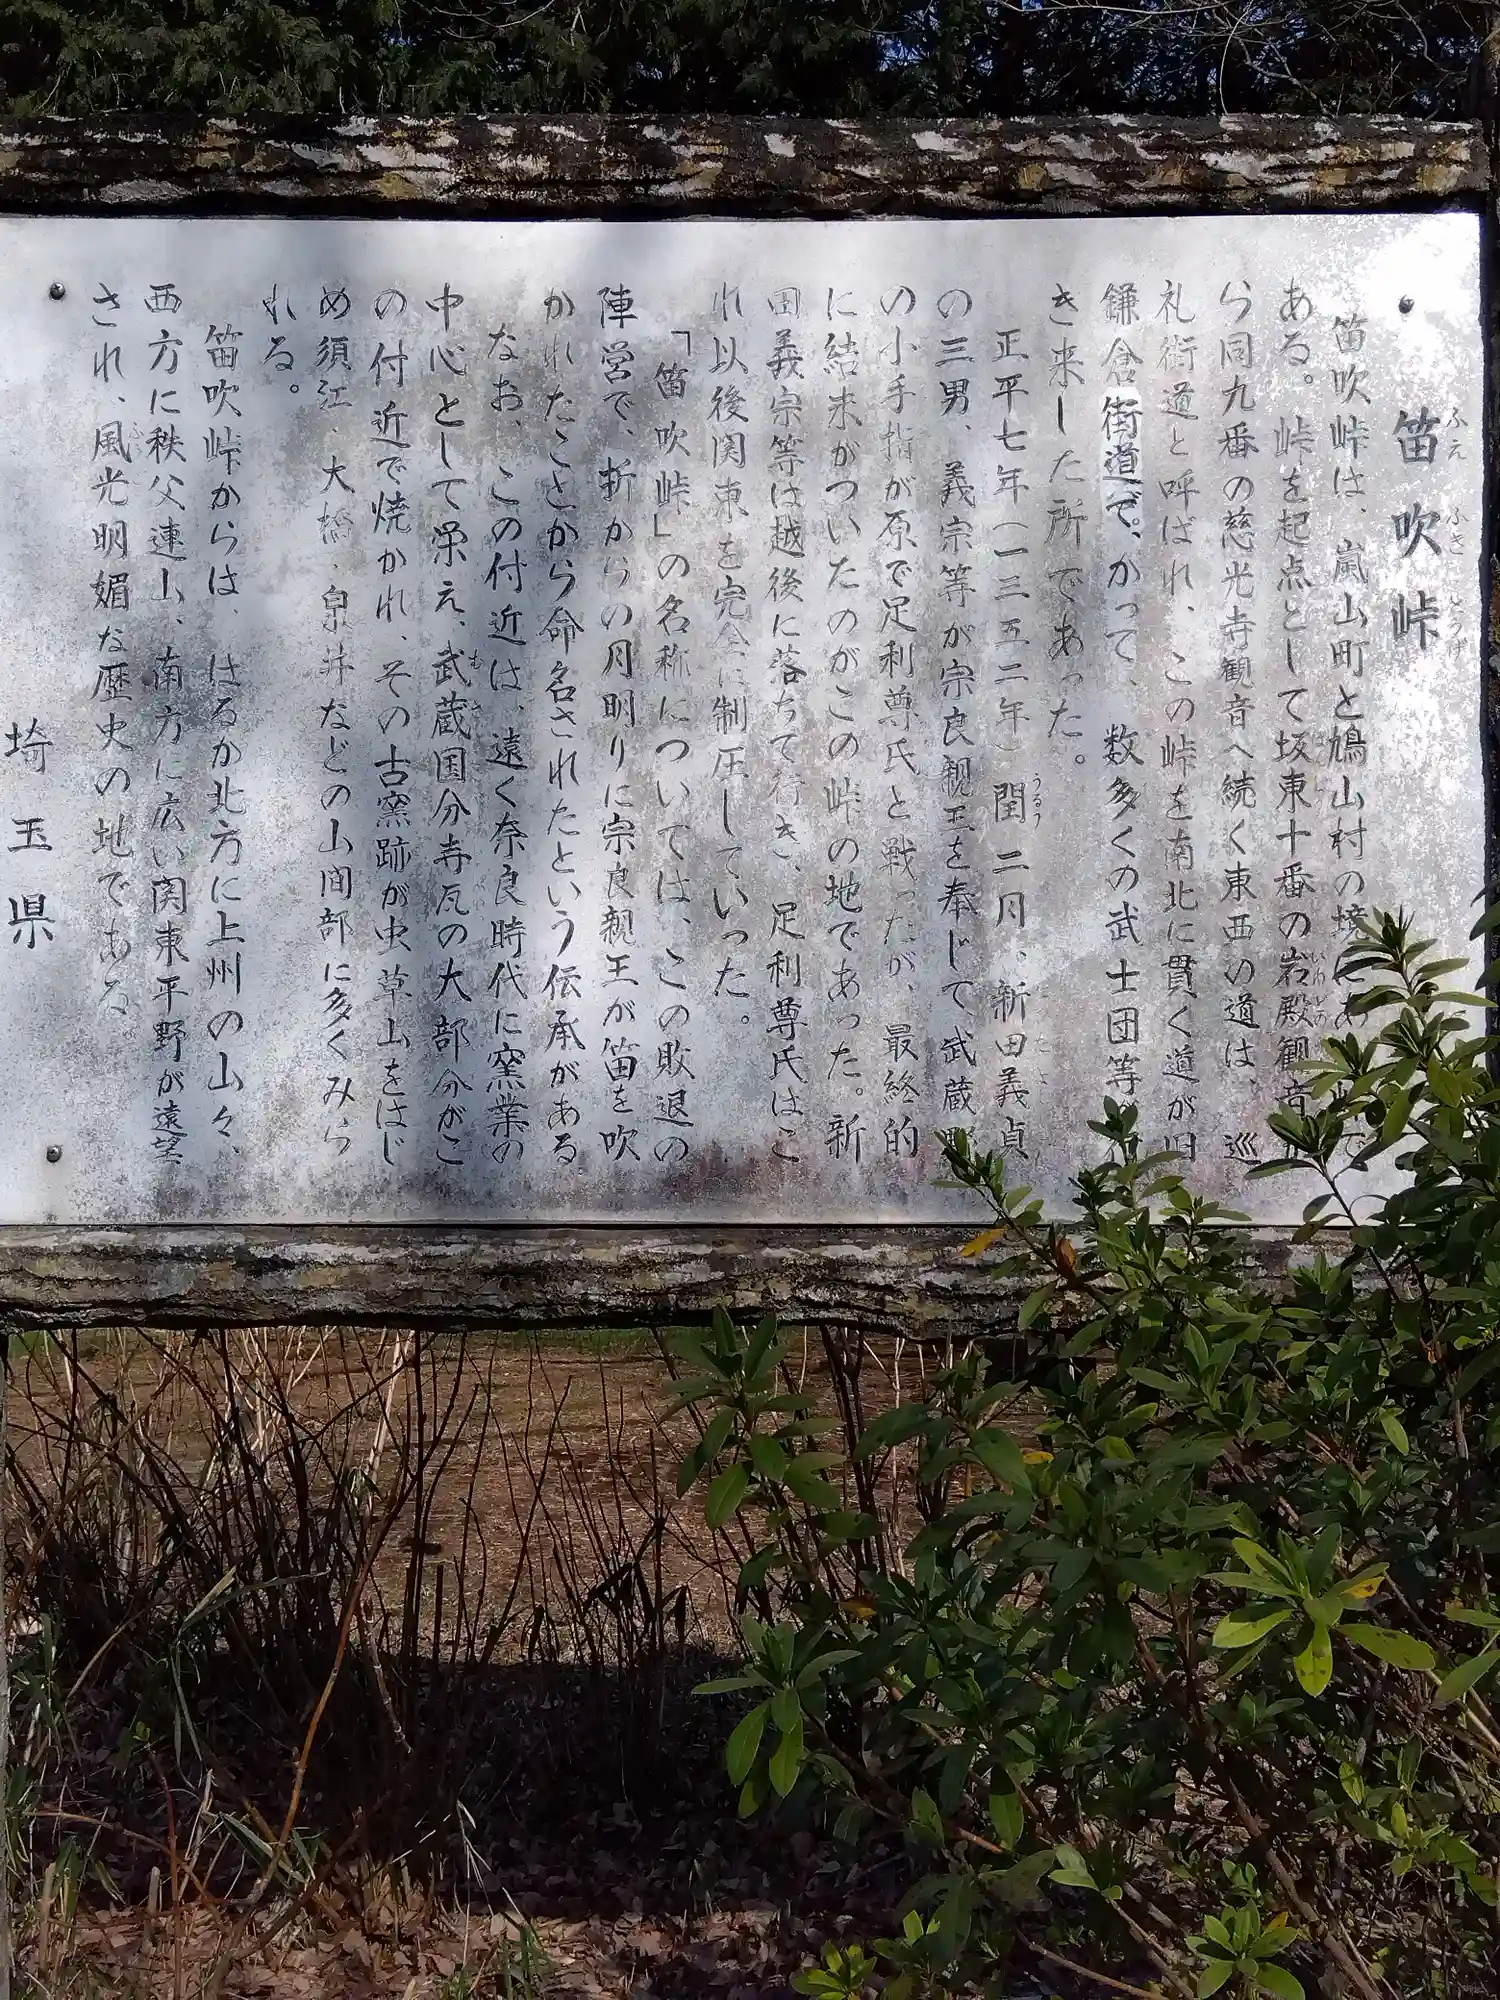 笛吹峠
ふえ ふき とうげ
笛吹峠は、嵐山町と鳩山村の境にあ
ある。峠を起点として坂東十番の岩殿観音
ら同九番の慈光寺観音へ続く東西の道は、巡
礼街道と呼ばれ、この峠を南北に貫く道が旧
鎌倉街道で、かって、数多くの武士団等が
き来した所であった。
正平七年(一三五二年)閏二月、新田義貞
の三男、義宗等が宗良親王を奉じて武蔵野
の小手指が原で足利尊氏と戦ったが、最終的
に結末がついたのがこの峠の地であった。新
田義宗等は越後に落ちて行き、足利尊氏はこ
れ以後関東を完全に制圧していった。
「笛吹峠」の名称については、この敗退の
陣営で、折からの月明りに宗良親王が笛を吹
かれたことから命名されたという伝承がある
なお、この付近は、遠く奈良時代に窯業の
中心として栄え、武蔵国分寺瓦の大部分がこ
の付近で焼かれ、その古窯跡が虫草山をはじ
め須江、大橋、泉井などの山間部に多くみら
れる。
笛吹峠からは、はるか北方に上州の山々、
西方に秩父連山、南方に広い関東平野が遠望
され、風光明媚な歴史の地である
埼玉県